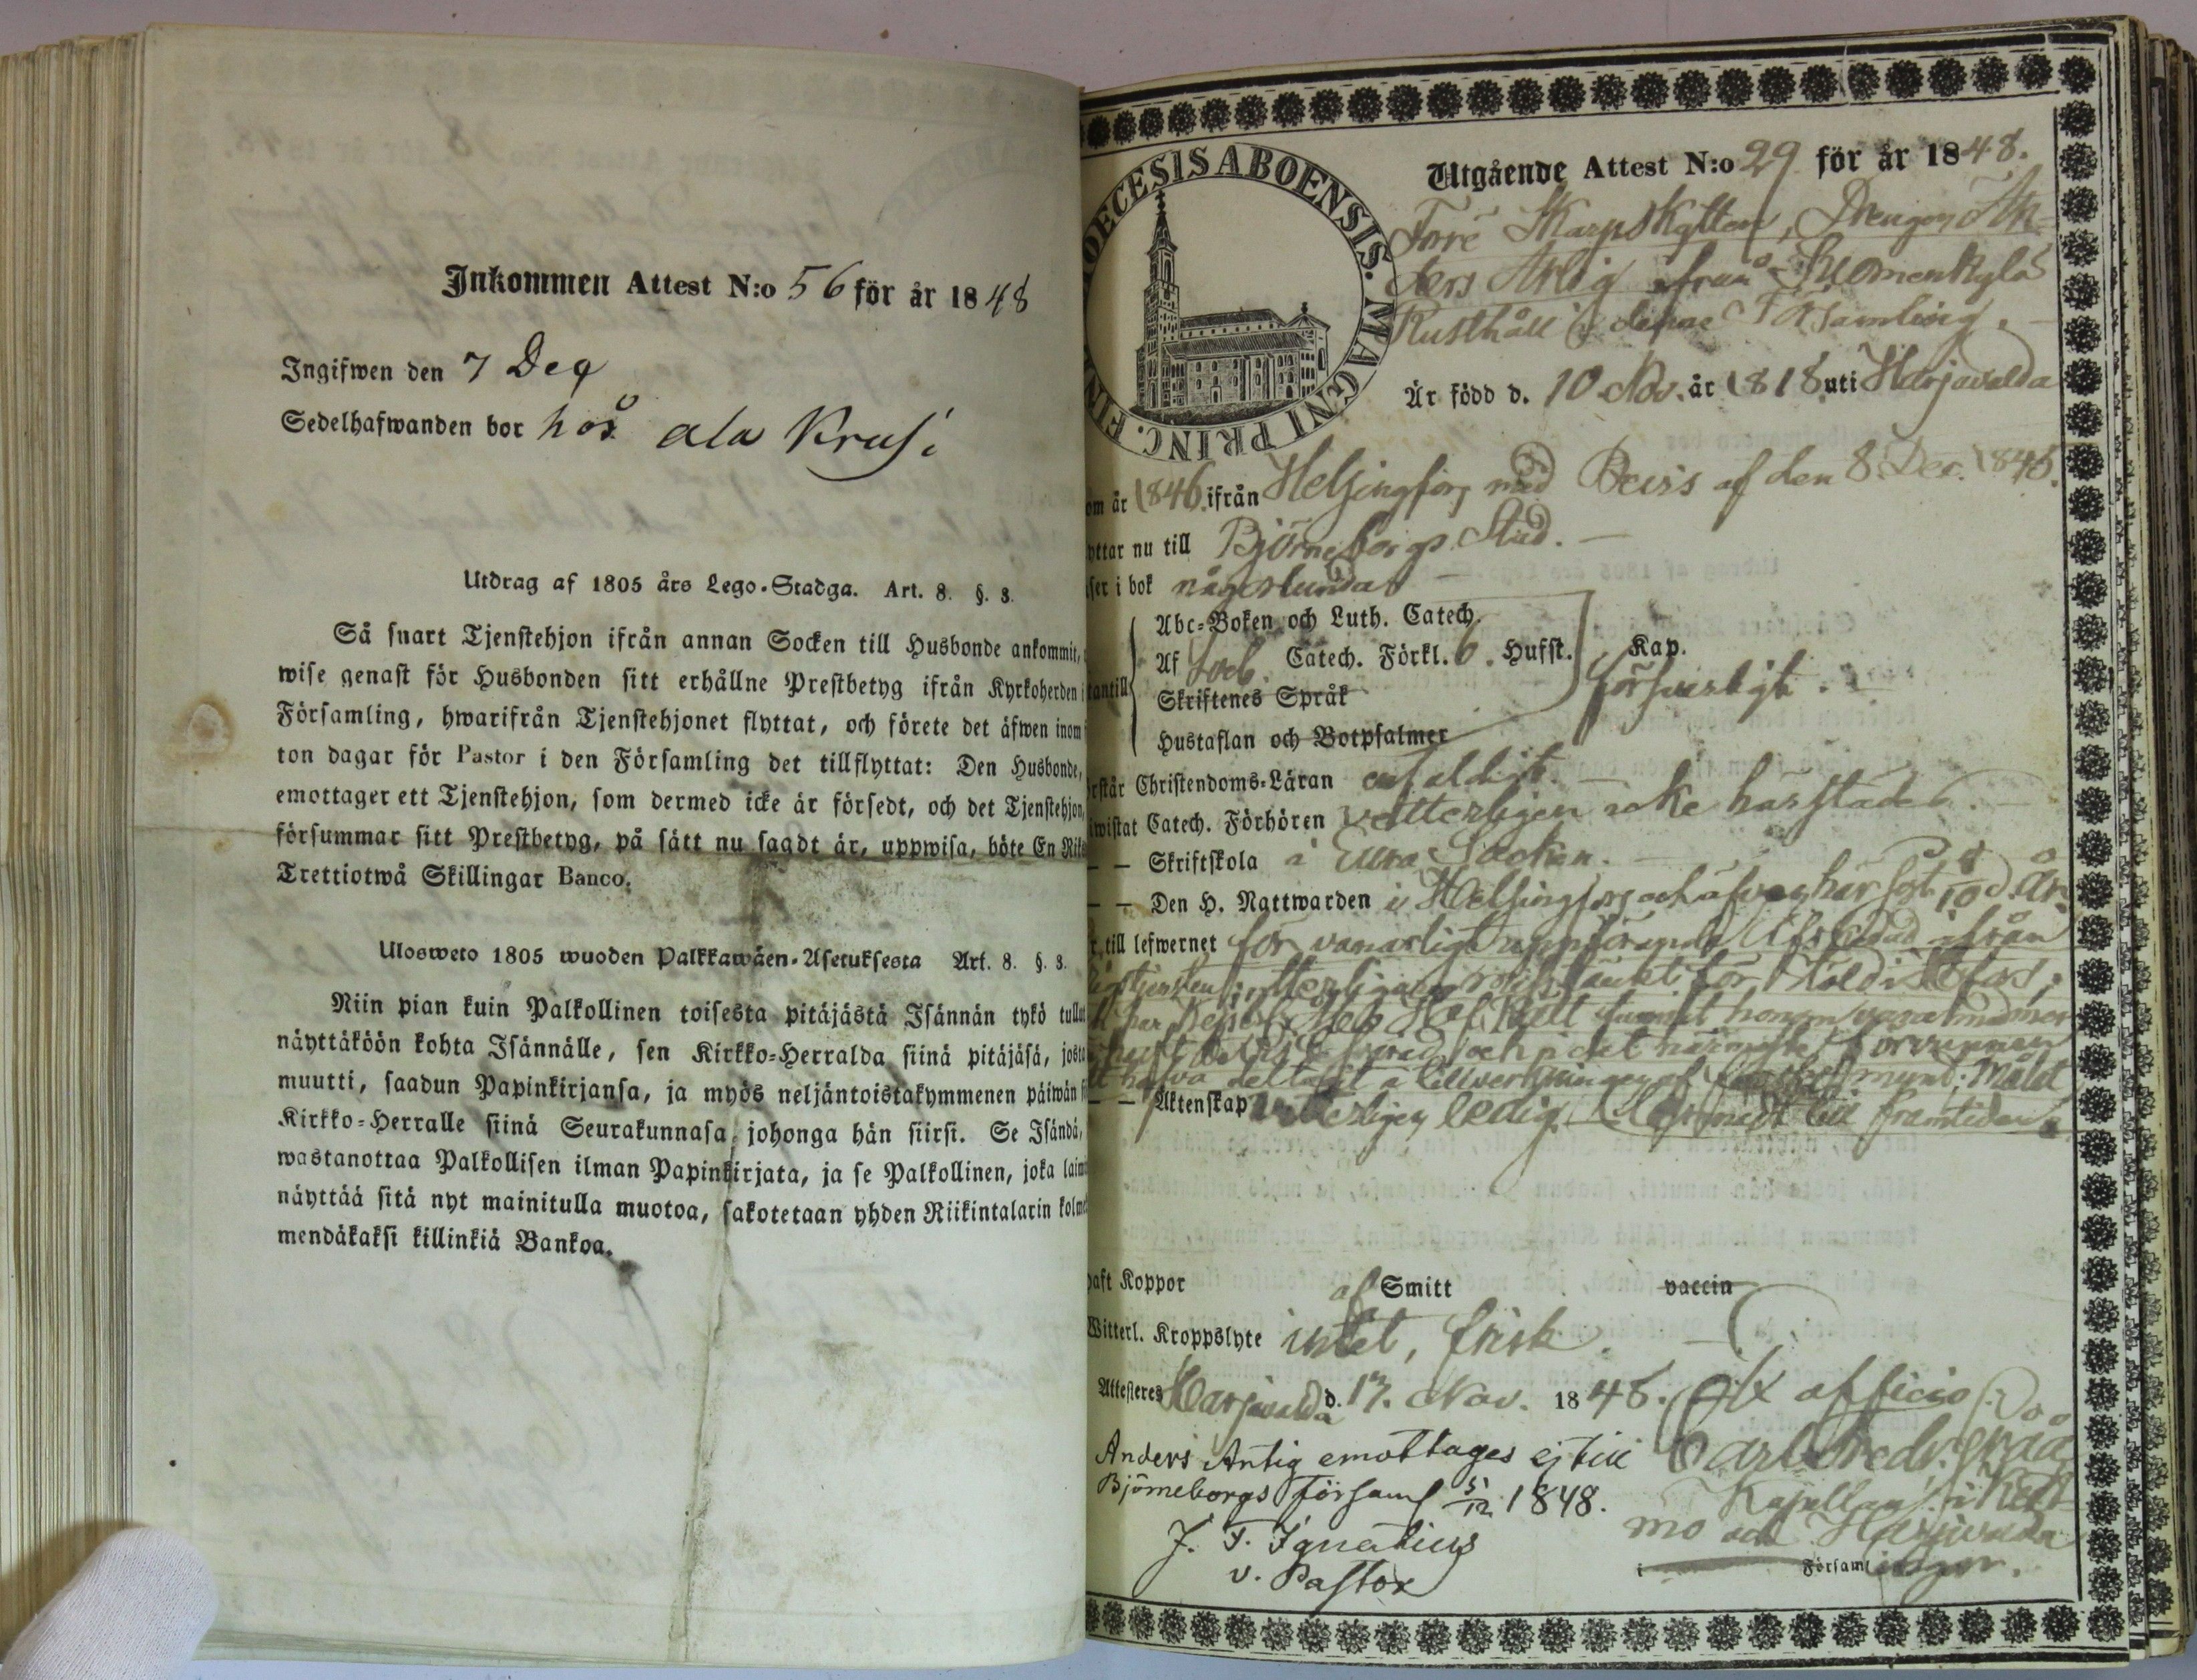 Inkommen Attest N:o 56 för år 1848
Ingifwen den 7 Dec
Sedelhafwanden bor hos ala Krusi
Utdrag af 1805 års Lego-Stadga. Art. 8. §. 3.
Så snart Tjenstehjon ifrån annan Socken till Husbonde ankommit,
wise genast för Husbonden sitt erhållne Prestbetyg ifrån Kyrkoherden i
Församling, hwarifrån Tjenstehjonet flyttat, och förete det äfwen inom
ton dagar för Pastor i den Församling det tillflyttat: Den Husbonde,
emottager ett Tjenstehjon, som dermed icke är försedt, och det Tjenstehjon,
försummar sitt Prestbetyg, på sätt nu sagdt är, uppwisa, böte En Riks
Trettiotwå Skillingar Banco.
Ulosweto 1805 wuoden Palkkawäen-Asetuksesta Art. 8. §. 3.
Niin pian kuin Palkollinen toisesta pitäjästä Isännän tykö tullut
näyttäköön kohta Isännälle, sen Kirkko-Herralda siinä pitäjäsä, josta
muutti, saadun Papinkirjansa, ja myös neljäntoistakymmenen päiwän si
Kirkko-Herralle siinä Seurakunnasa, johonga hän siirsi. Se Isändä,
wastanottaa Palkollisen ilman Papinkirjata, ja se Palkollinen, joka laimi
näyttää sitä nyt mainitulla muotoa, sakotetaan yhden Riikintalarin kolme
mendäkaksi killinkiä Bankoa.
DIOECESIS ABOENSIS. MAGNI PRINC. FIN
Utgående Attest N:o 29 för år 1848.
Förre Skarpskytten, Drengen An-
ders Antig ifrån Suomenkylä
Rusthåll i denne Församling.
Är född d. 10 Nov. år 1818 uti Harjavalda
om år 1846 ifrån Helsingfors med Bevis af den 8 Dec. 1846.
yttar nu till Björneborgs Stad.
ser i bok någorlunda
Abc-Boken och Luth. Catech.
Af Catech. Förkl. 6. Hufst. Kap.
antill Skriftenes Språk försvarligt.
Hustaflan och Botpsalmer
rstår Christendoms-Läran enfaldigt.
iwistat Catech. Förhören vetterligen icke härstädes.
— — Skriftskola i Eura Socken.
— — Den H. Nattwarden i Helsingfors och äfven här sist d. År
r till lefwernet för vanartigt uppförande afskedad ifrån
för Stöld
har honom
och i det
hafva deltagit i tillverkningen af mynt. Målet
— — Äktenskap vetterligen ledig. till framtiden.
haft Koppor af Smitt vaccin
Witterl. Kroppslyte intet, frisk.
Attesteres Harjavalda d. 17. Nov. 1848. Ex officio
Anders Antig emottages ej till Carl Fredr.
Björneborgs Församl 5/12 1848. Kapellan i Keik-
J. F. Ignatius mo och Harjavalda
v. Pastor i Församlingar.